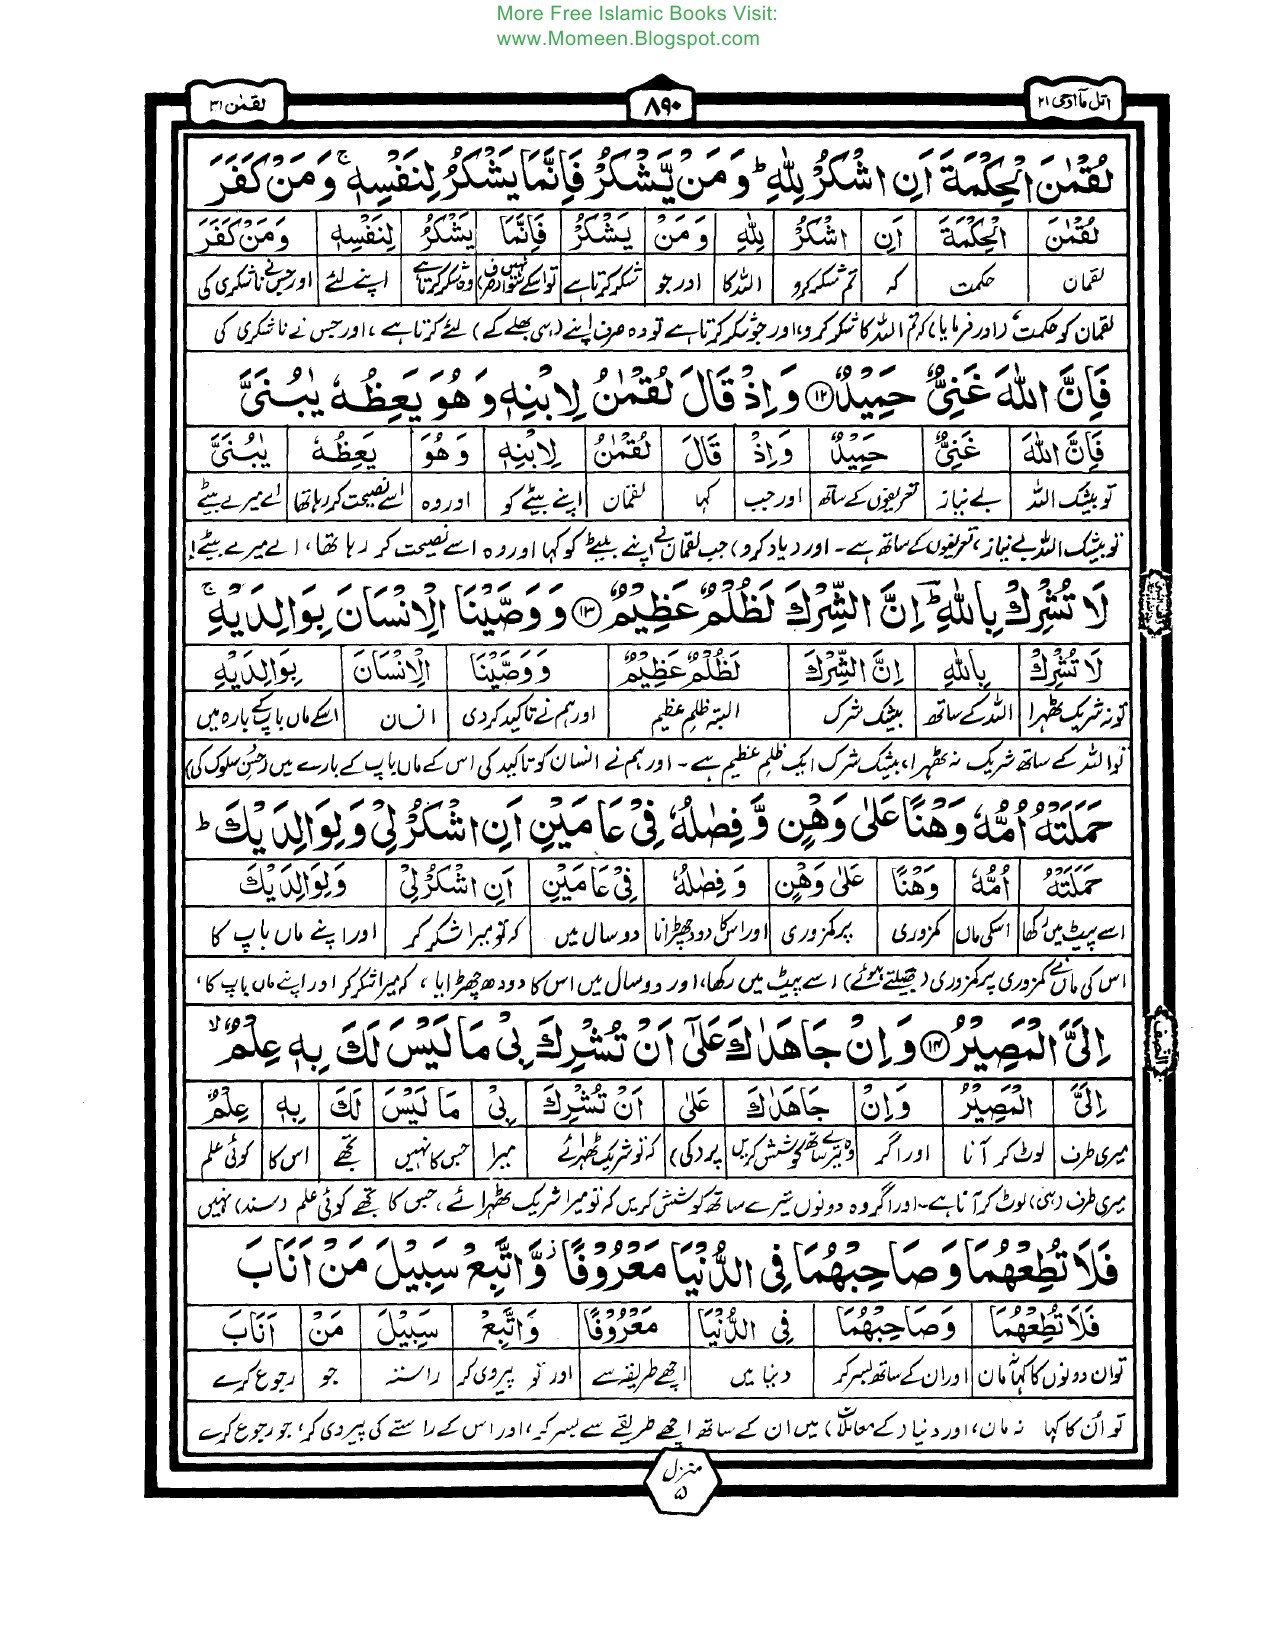 More Free Islamic Books Visit:
www.Momeen.Blogspot.com
اتل مآ اوحی ۲۱
۸۹۰
لقمٰن ۳۱
لُقْمٰنَ الْحِكْمَةَ اَنِ اشْكُرْ لِلّٰهِ ؕ وَمَنْ يَّشْكُرْ فَاِنَّمَا يَشْكُرُ لِنَفْسِهٖ ۚ وَمَنْ كَفَرَ
لُقْمٰنَ الْحِكْمَةَ اَنِ اشْكُرْ لِلّٰهِ وَمَنْ يَشْكُرْ فَاِنَّمَا يَشْكُرُ لِنَفْسِهٖ وَمَنْ كَفَرَ
لقمان حکمت کہ تم شکر کرو اللہ کا اور جو شکر کرتا ہے تو اسکے سوا نہیں (صرف) وہ شکر کرتا ہے اپنے لئے اور جس نے ناشکری کی
لقمان کو حکمت (اور فرمایا) کہ تم اللہ کا شکر کرو، اور جو شکر کرتا ہے تو وہ صرف اپنے (ہی بھلے کے) لئے کرتا ہے، اور جس نے ناشکری کی
فَاِنَّ اللّٰهَ غَنِيٌّ حَمِيْدٌ ۝۱۲ وَاِذْ قَالَ لُقْمٰنُ لِابْنِهٖ وَهُوَ يَعِظُهٗ يٰبُنَيَّ
فَاِنَّ اللّٰهَ غَنِيٌّ حَمِيْدٌ وَاِذْ قَالَ لُقْمٰنُ لِابْنِهٖ وَهُوَ يَعِظُهٗ يٰبُنَيَّ
تو بیشک اللہ بے نیاز تعریفوں کے ساتھ اور جب کہا لقمان اپنے بیٹے کو اور وہ اسے نصیحت کر رہا تھا اے میرے بیٹے
تو بیشک اللہ بے نیاز، تعریفوں کے ساتھ ہے۔ اور (یاد کرو) جب لقمان نے اپنے بیٹے کو کہا اور وہ اسے نصیحت کر رہا تھا، اے میرے بیٹے!
لَا تُشْرِكْ بِاللّٰهِ ؕ اِنَّ الشِّرْكَ لَظُلْمٌ عَظِيْمٌ ۝۱۳ وَوَصَّيْنَا الْاِنْسَانَ بِوَالِدَيْهِ ۚ
لَا تُشْرِكْ بِاللّٰهِ اِنَّ الشِّرْكَ لَظُلْمٌ عَظِيْمٌ وَوَصَّيْنَا الْاِنْسَانَ بِوَالِدَيْهِ
تو نہ شریک ٹھہرا اللہ کے ساتھ بیشک شرک البتہ ظلم عظیم اور ہم نے تاکید کردی انسان اسکے ماں باپ کے بارہ میں
تو اللہ کے ساتھ شریک نہ ٹھہرا، بیشک شرک ایک ظلم عظیم ہے۔ اور ہم نے انسان کو تاکید کی اس کے ماں باپ کے بارے میں (حسن سلوک کی)
حَمَلَتْهُ اُمُّهٗ وَهْنًا عَلٰى وَهْنٍ وَّفِصٰلُهٗ فِيْ عَامَيْنِ اَنِ اشْكُرْ لِيْ وَلِوَالِدَيْكَ ؕ
حَمَلَتْهُ اُمُّهٗ وَهْنًا عَلٰى وَهْنٍ وَفِصٰلُهٗ فِيْ عَامَيْنِ اَنِ اشْكُرْ لِيْ وَلِوَالِدَيْكَ
اسے پیٹ میں رکھا اسکی ماں کمزوری پر کمزوری اور اس کا دودھ چھڑانا دو سال میں کہ تو میرا شکر کر اور اپنے ماں باپ کا
اس کی ماں نے کمزوری پر کمزوری (جھیلتے ہوئے) اسے پیٹ میں رکھا، اور دو سال میں اس کا دودھ چھڑایا، کہ میرا شکر کر اور اپنے ماں باپ کا،
اِلَيَّ الْمَصِيْرُ ۝۱۴ وَاِنْ جَاهَدٰكَ عَلٰٓى اَنْ تُشْرِكَ بِيْ مَا لَيْسَ لَكَ بِهٖ عِلْمٌ ۙ
اِلَيَّ الْمَصِيْرُ وَاِنْ جَاهَدٰكَ عَلٰى اَنْ تُشْرِكَ بِيْ مَا لَيْسَ لَكَ بِهٖ عِلْمٌ
میری طرف لوٹ کر آنا اور اگر وہ تیرے ساتھ کوشش کریں پر (کی) کہ تو شریک ٹھہرائے میرا جس کا نہیں تجھے اس کا کوئی علم
میری طرف (ہی) لوٹ کر آنا ہے۔ اور اگر وہ دونوں تیرے ساتھ کوشش کریں کہ تو میرا شریک ٹھہرائے، جس کا تجھے کوئی علم (سند) نہیں
فَلَا تُطِعْهُمَا وَصَاحِبْهُمَا فِي الدُّنْيَا مَعْرُوْفًا ۫ وَّاتَّبِعْ سَبِيْلَ مَنْ اَنَابَ
فَلَا تُطِعْهُمَا وَصَاحِبْهُمَا فِي الدُّنْيَا مَعْرُوْفًا وَاتَّبِعْ سَبِيْلَ مَنْ اَنَابَ
تو ان دونوں کا کہا نہ مان اور ان کے ساتھ بسر کر دنیا میں اچھے طریقہ سے اور تو پیروی کر راستہ جو رجوع کرے
تو ان کا کہا نہ مان، اور دنیا (کے معاملات) میں ان کے ساتھ اچھے طریقے سے بسر کر، اور اس کے راستے کی پیروی کر، جو رجوع کرے
النصف
منزل ۵